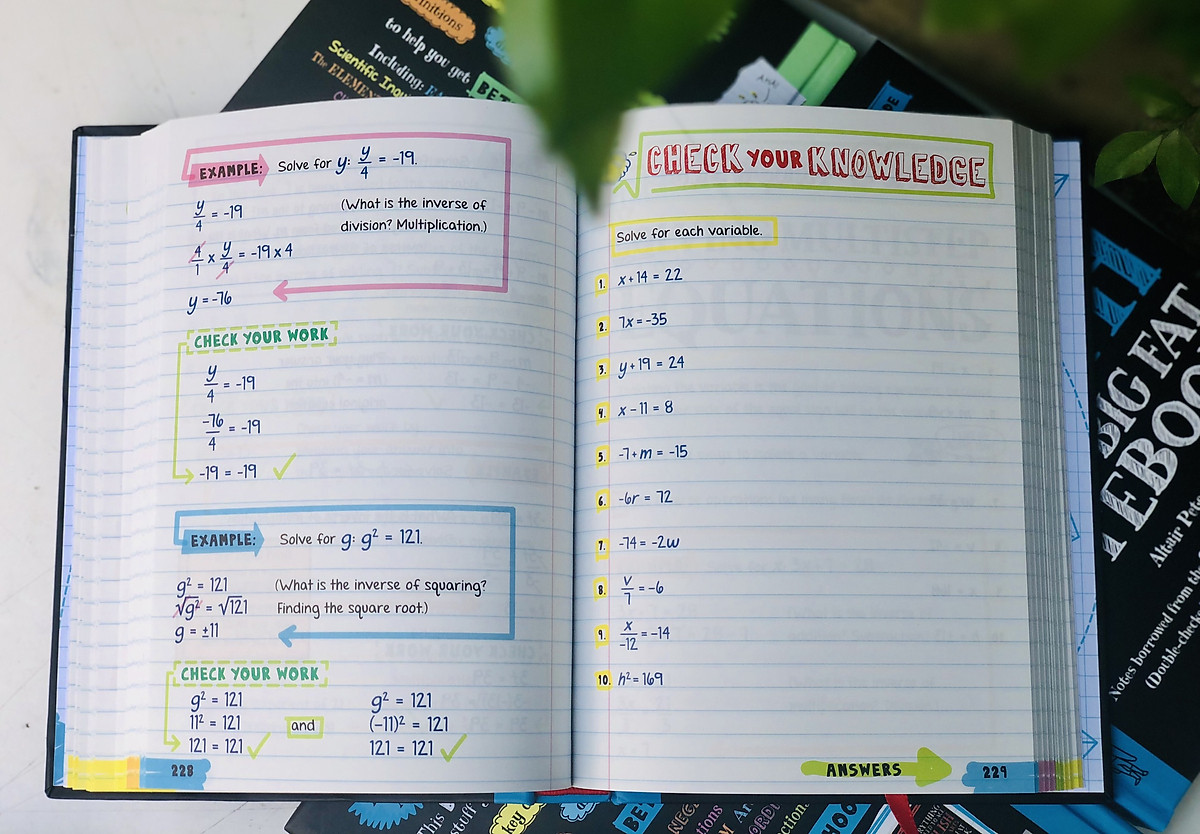 initions
to help you get
Including:
Scientific Inqu
The ELEMEN
BET
EXAMPLE: Solve for y: y/4 = -19.
y/4 = -19 (What is the inverse of
division? Multiplication.)
4/1 x y/4 = -19 x 4
y = -76
CHECK YOUR WORK
y/4 = -19
-76/4 = -19
-19 = -19 ✓
EXAMPLE: Solve for g: g² = 121.
g² = 121 (What is the inverse of squaring?
√g² = √121 Finding the square root.)
g = ±11
CHECK YOUR WORK
g² = 121 g² = 121
11² = 121 and (-11)² = 121
121 = 121 ✓ 121 = 121 ✓
228
CHECK YOUR KNOWLEDGE
Solve for each variable.
1. x + 14 = 22
2. 7x = -35
3. y + 19 = 24
4. x - 11 = 8
5. -7 + m = -15
6. -6r = 72
7. -74 = -2w
8. v/7 = -6
9. x/-12 = -14
10. h² = 169
ANSWERS 229
BIG FAT
EBOO
Altair Pet
Notes borrowed from the
(Double-check
This
stuff
key
BET
NEG
tions